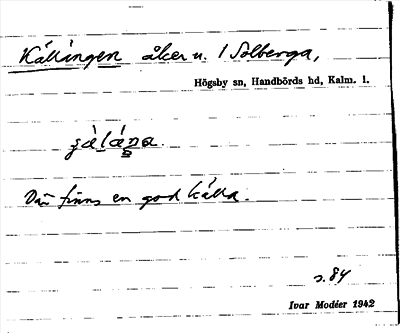 Källängen åker u. 1 Solberga,
Högsby sn, Handbörds hd, Kalm. l.
Där finns en god källa.
s. 84
Ivar Modéer 1942